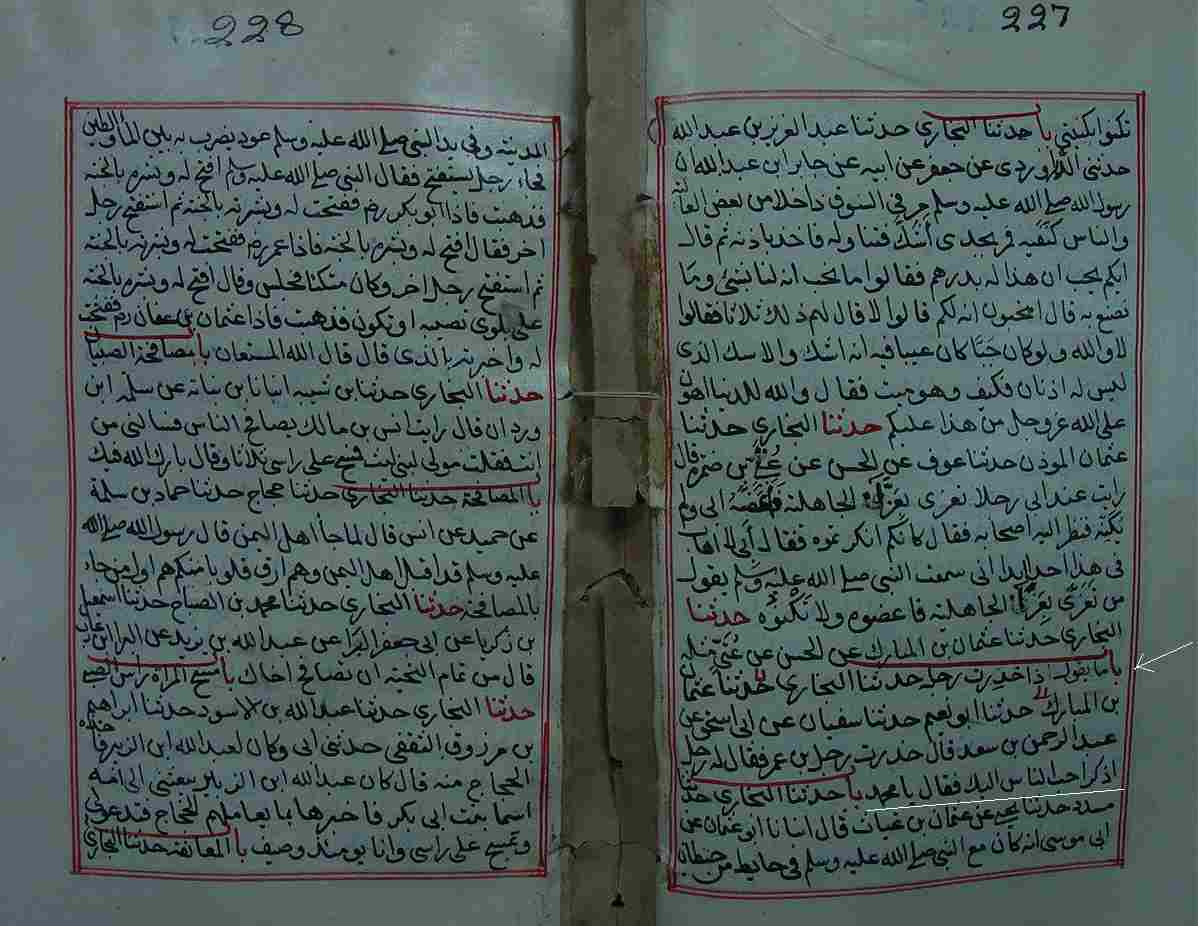 227
تكنوا بكنيتي با حدثنا البخاري حدثنا عبد العزيز بن عبد الله
حدثني الدراوردي عن جعفر عن ابيه عن جابر ابن عبد الله ان
رسول الله صلے الله عليه وسلم مر في السوق داخلا من بعض العالية
والناس كنفيه فمر بجدي أسك فتناوله فاخد باذنه ثم قال
ايكم يحب ان هذا له بدرهم فقالوا ما نحب انه لنا بشئ وما
نصنع به قال اتحبون انه لكم قالوا لا قال لهم ذلك ثلاثا فقالوا
لا والله ولو كان حيا كان عيبا فيه انه اسك والاسك الذى
ليس له اذنان فكيف وهو ميت فقال والله للدنيا اهون
على الله عز وجل من هذا عليكم حدثنا البخاري حدثنا
عثمان الموذن حدثنا عوف عن الحسن عن عتي بن ضمرة قال
رايت عند ابى رجلا تعزى بعزاء الجاهلية فاعضه ابى ولم
يكنه فنظر اليه اصحابه فقال كانكم انكرتموه فقال انى لا اهاب
فى هذا احدا ابدا انى سمعت النبي صلے الله عليه وسلم يقول
من تعزى بعزاء الجاهلية فاعضوه ولا تكنوه حدثنا
البخارى حدثنا عثمان بن المبارك عن الحسن عن عتي مثله
با ما يقول اذا خدرت رجله حدثنا البخاري حدثنا عثمان
بن المبارك حدثنا ابو نعيم حدثنا سفيان عن ابى اسحق عن
عبد الرحمن بن سعد قال خدرت رجل بن عمر فقال له رجل
اذكر احب الناس اليك فقال يا محمد با حدثنا البخاري حدثنا
مسدد حدثنا يحيى عن عثمان بن غياث قال انبانا ابو عثمان عن
ابى موسى انه كان مع النبي صلے الله عليه وسلم فى حايط من حيطان
228
المدينة وفى يد النبي صلے الله عليه وسلم عود يضرب به بين الماء والطين
فجاء رجل يستفتح فقال النبي صلى الله عليه وسلم افتح له وبشره بالجنة
فذهبت فاذا ابو بكر رض ففتحت له وبشرته بالجنة ثم استفتح رجل
اخر فقال افتح له وبشره بالجنة فاذا عمر رض ففتحت له وبشرته بالجنة
ثم استفتح رجل اخر وكان متكئا فجلس وقال افتح له وبشره بالجنة
على بلوى تصيبه او تكون فذهبت فاذا عثمان بن عفان رض ففتحت
له واخبرته بالذى قال قال الله المستعان با مصافحة الصبيان
حدثنا البخاري حدثنا بن شيبه انبانا بن نباتة عن سلمه ابن
وردان قال رايت انس بن مالك يصافح الناس فسالني من
انت فقلت مولى لبنى ليث فمسح على راسى ثلاثا وقال بارك الله فيك
با المصافحة حدثنا البخاري حدثنا حجاج حدثنا حماد بن سلمة
عن حميد عن انس قال لما جا أهل اليمن قال رسول الله صلے الله
عليه وسلم قد اقبل اهل اليمن وهم ارق قلوبا منكم فهم اول من جاء
بالمصافحة حدثنا البخاري حدثنا محمد بن الصباح حدثنا اسمعيل
بن زكريا عن ابى جعفر الفرا عن عبد الله بن يزيد عن البرا ابن عازب
قال من تمام التحية ان تصافح اخاك با مسح المراة راس الصبي
حدثنا البخاري حدثنا عبد الله بن الاسود حدثنا ابراهيم
بن مرزوق الثقفى حدثني ابى وكان لعبد الله ابن الزبير فاخذه
الحجاج منه قال كان عبد الله ابن الزبير بعثنى الى امه
اسما بنت ابى بكر فاخبرها بما يعاملهم الحجاج فتدعولى
وتمسح على راسى وانا يومئذ وصيف با المعانقة حدثنا البخارى